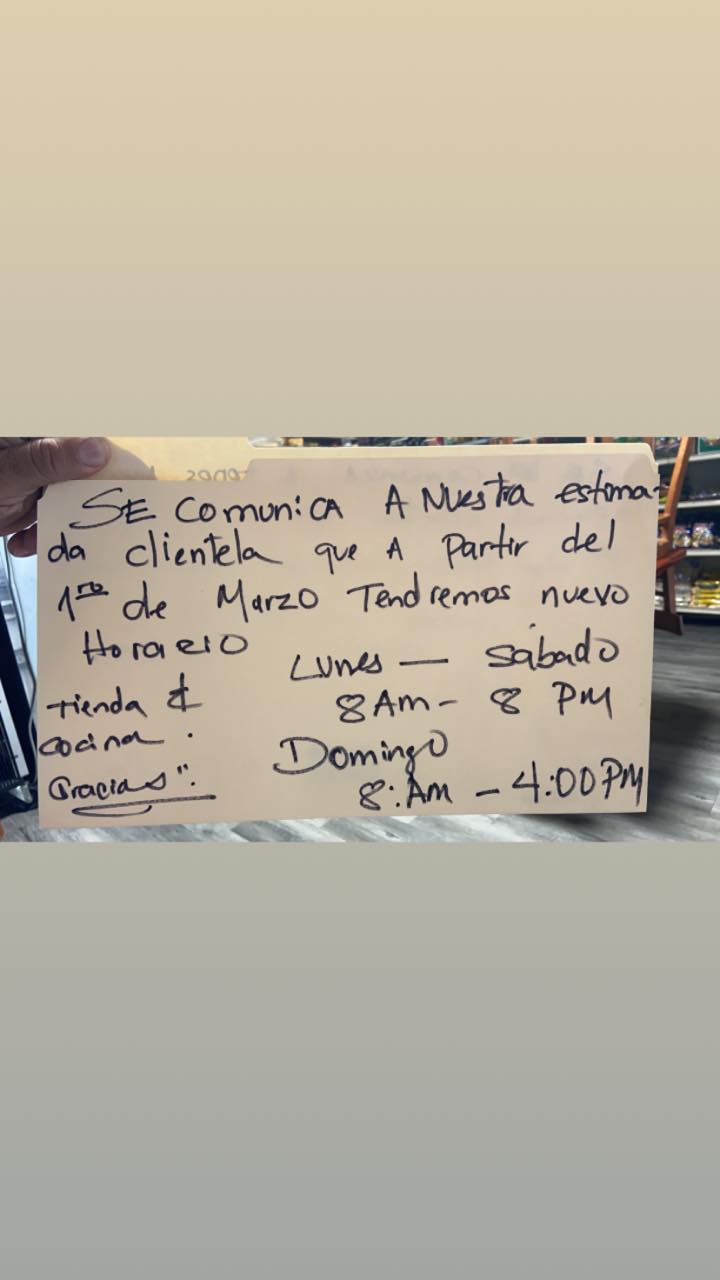 SE ComuniCA A Nuestra estima-
da clientela que A Partir del
1ro de Marzo Tendremos nuevo
Horario
Lunes — Sábado
tienda & 8 Am - 8 PM
cocina.
Domingo
Gracias".
8:Am - 4:00 PM